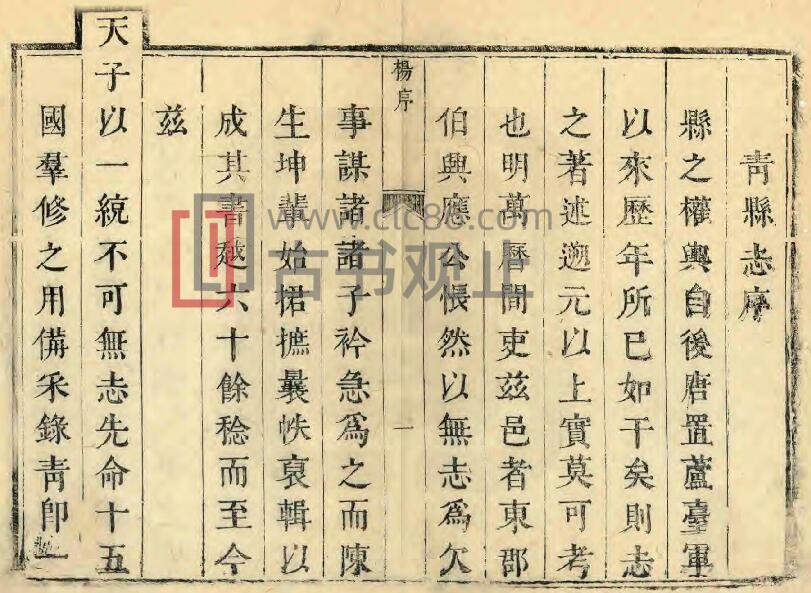 青縣志序
縣之權輿自後唐置蘆臺軍
以來歷年所已如干矣則志
之著述遡元以上實莫可考
也明萬曆間吏兹邑者東郡
伯興應公悵然以無志爲欠
楊序
一
事謀諸諸子衿急爲之而陳
生坤輩始捃摭曩帙裒輯以
成其書越六十餘稔而至今
兹
天子以一統不可無志先命十五
國羣修之用備采錄青卽一
www.ctc86.com
古书观止